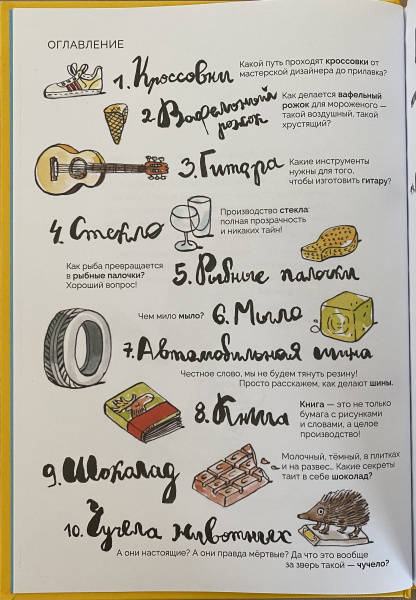 ОГЛАВЛЕНИЕ
1. Кроссовки
Какой путь проходят кроссовки от
мастерской дизайнера до прилавка?
2. Вафельный
рожок
Как делается вафельный
рожок для мороженого —
такой воздушный, такой
хрустящий?
3. Гитара
Какие инструменты
нужны для того,
чтобы изготовить гитару?
4. Стекло
Производство стекла:
полная прозрачность
и никаких тайн!
Как рыба превращается
в рыбные палочки?
Хороший вопрос!
5. Рыбные палочки
Чем мило мыло?
6. Мыло
7. Автомобильная шина
Честное слово, мы не будем тянуть резину!
Просто расскажем, как делают шины.
8. Книга
Книга — это не только
бумага с рисунками
и словами, а целое
производство!
9. Шоколад
Молочный, тёмный, в плитках
и на развес... Какие секреты
таит в себе шоколад?
10. Чучела животных
А они настоящие? А они правда мёртвые? Да что это вообще
за зверь такой — чучело?